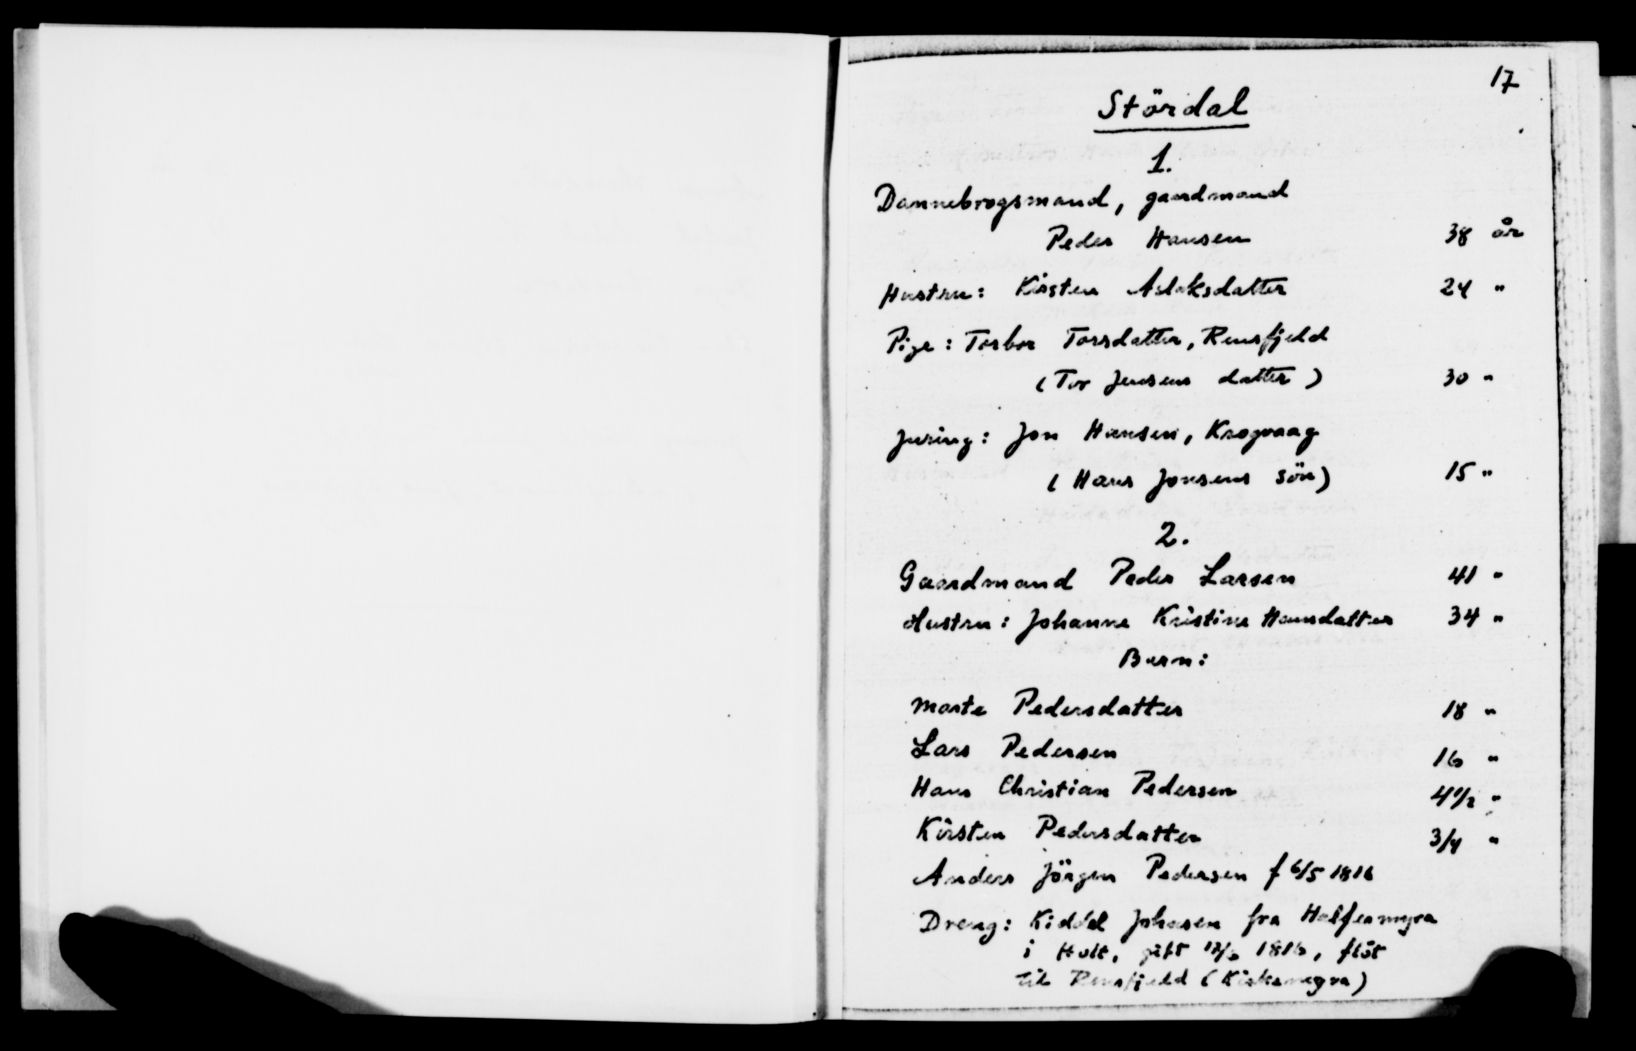 17
Stördal
1.
Dannebrogsmand, gaardmand
Peder Hansen 38 år
Hustru: Kirsten Aslaksdatter 24 "
Pige: Torbor Torsdatter, Rensfjeld
(Tor Jensens datter) 30 "
Jon Hansen, Krogvaag
(Hans Jonsens sön) 15 "
2.
Gaardmand Peder Larsen 41 "
Hustru: Johanne Kristine Hansdatter 34 "
Barn:
Marte Pedersdatter 18 "
Lars Pedersen 16 "
Hans Christian Pedersen 4 1/2 "
Kirsten Pedersdatter 3/4 "
Anders Jörgen Pedersen f 6/5 1816
Dreng: Johnsen fra
i Holt, gift 1816, flöt
til Rensfjeld